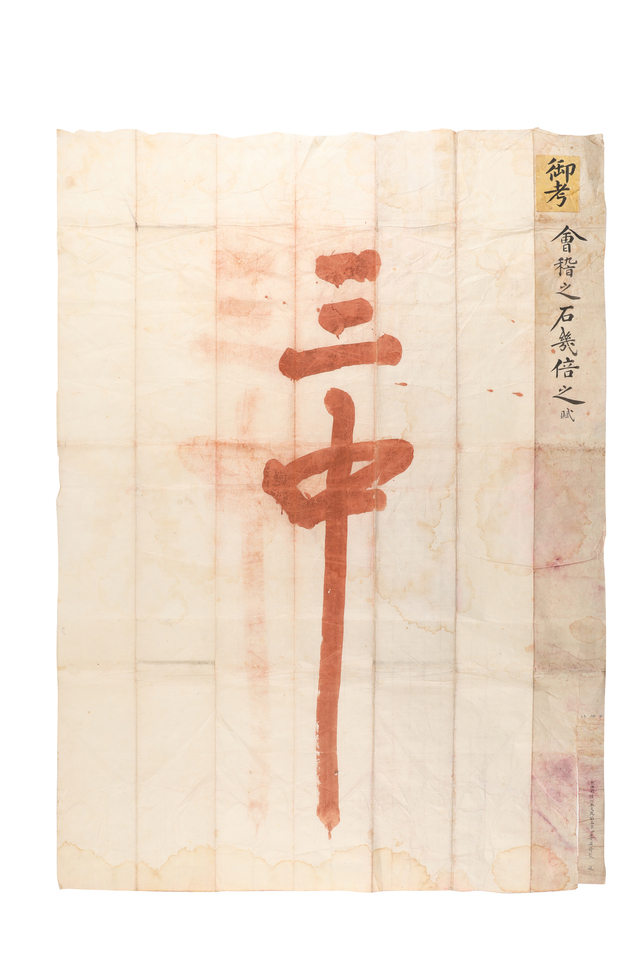 御考
會稽之石幾倍之賦
三中